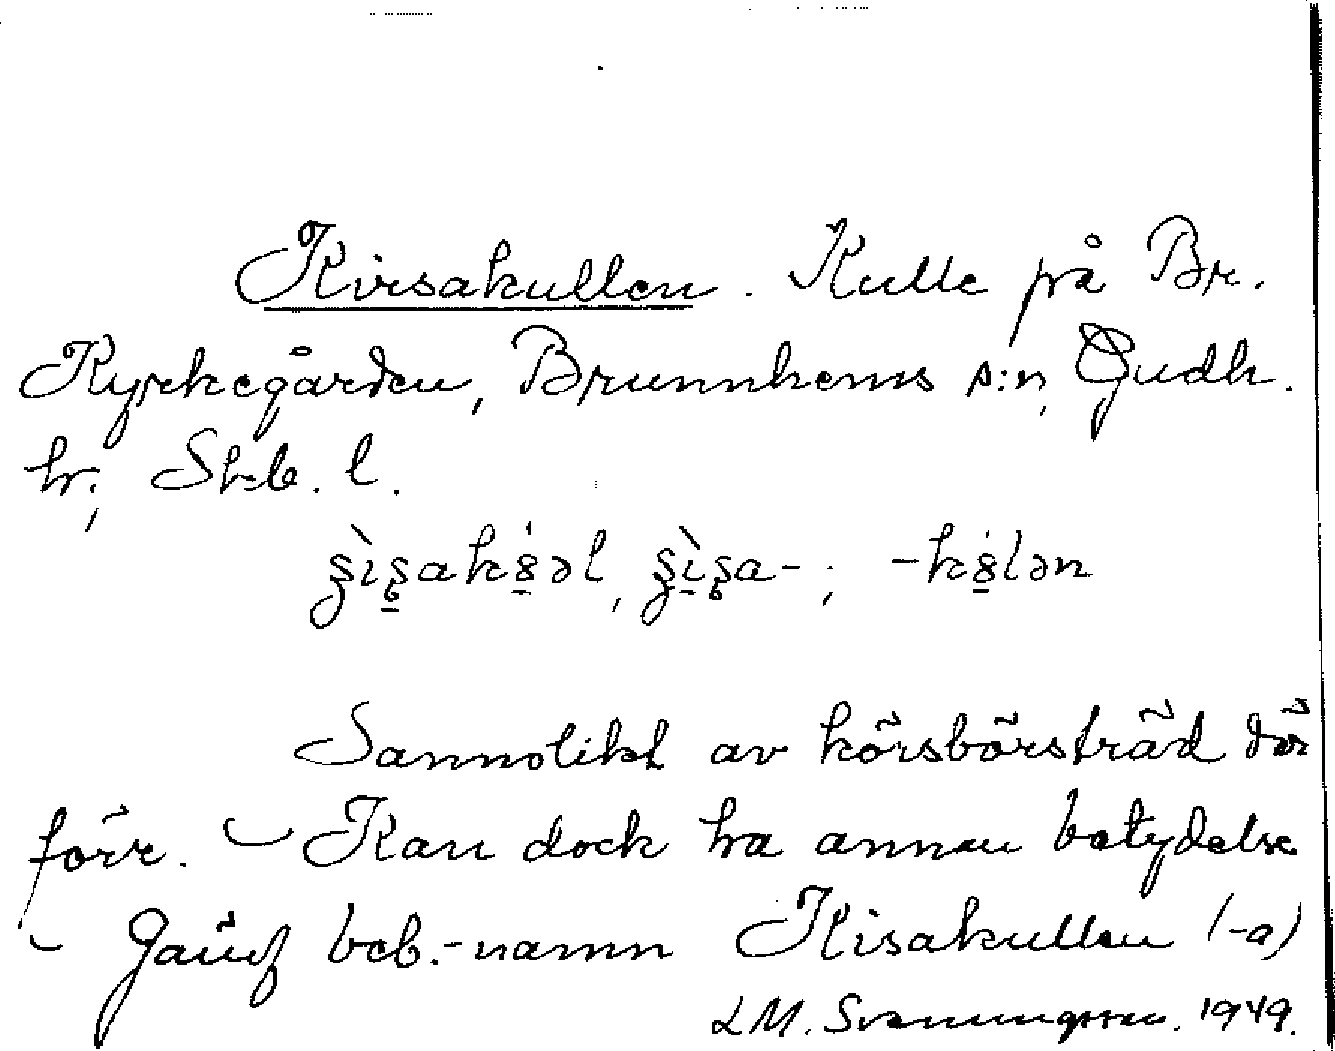 Kirsakullen. Kulle på Br.
Kyrkegården, Brunnhems s:n, Gudh.
hr., Skb. l.
Sannolikt av körsbörsträd där
förr. – Kan dock ha annan betydelse
– Jämf beb.-namn Kisakullen (-a)
LM. Svenungsson. 1949.